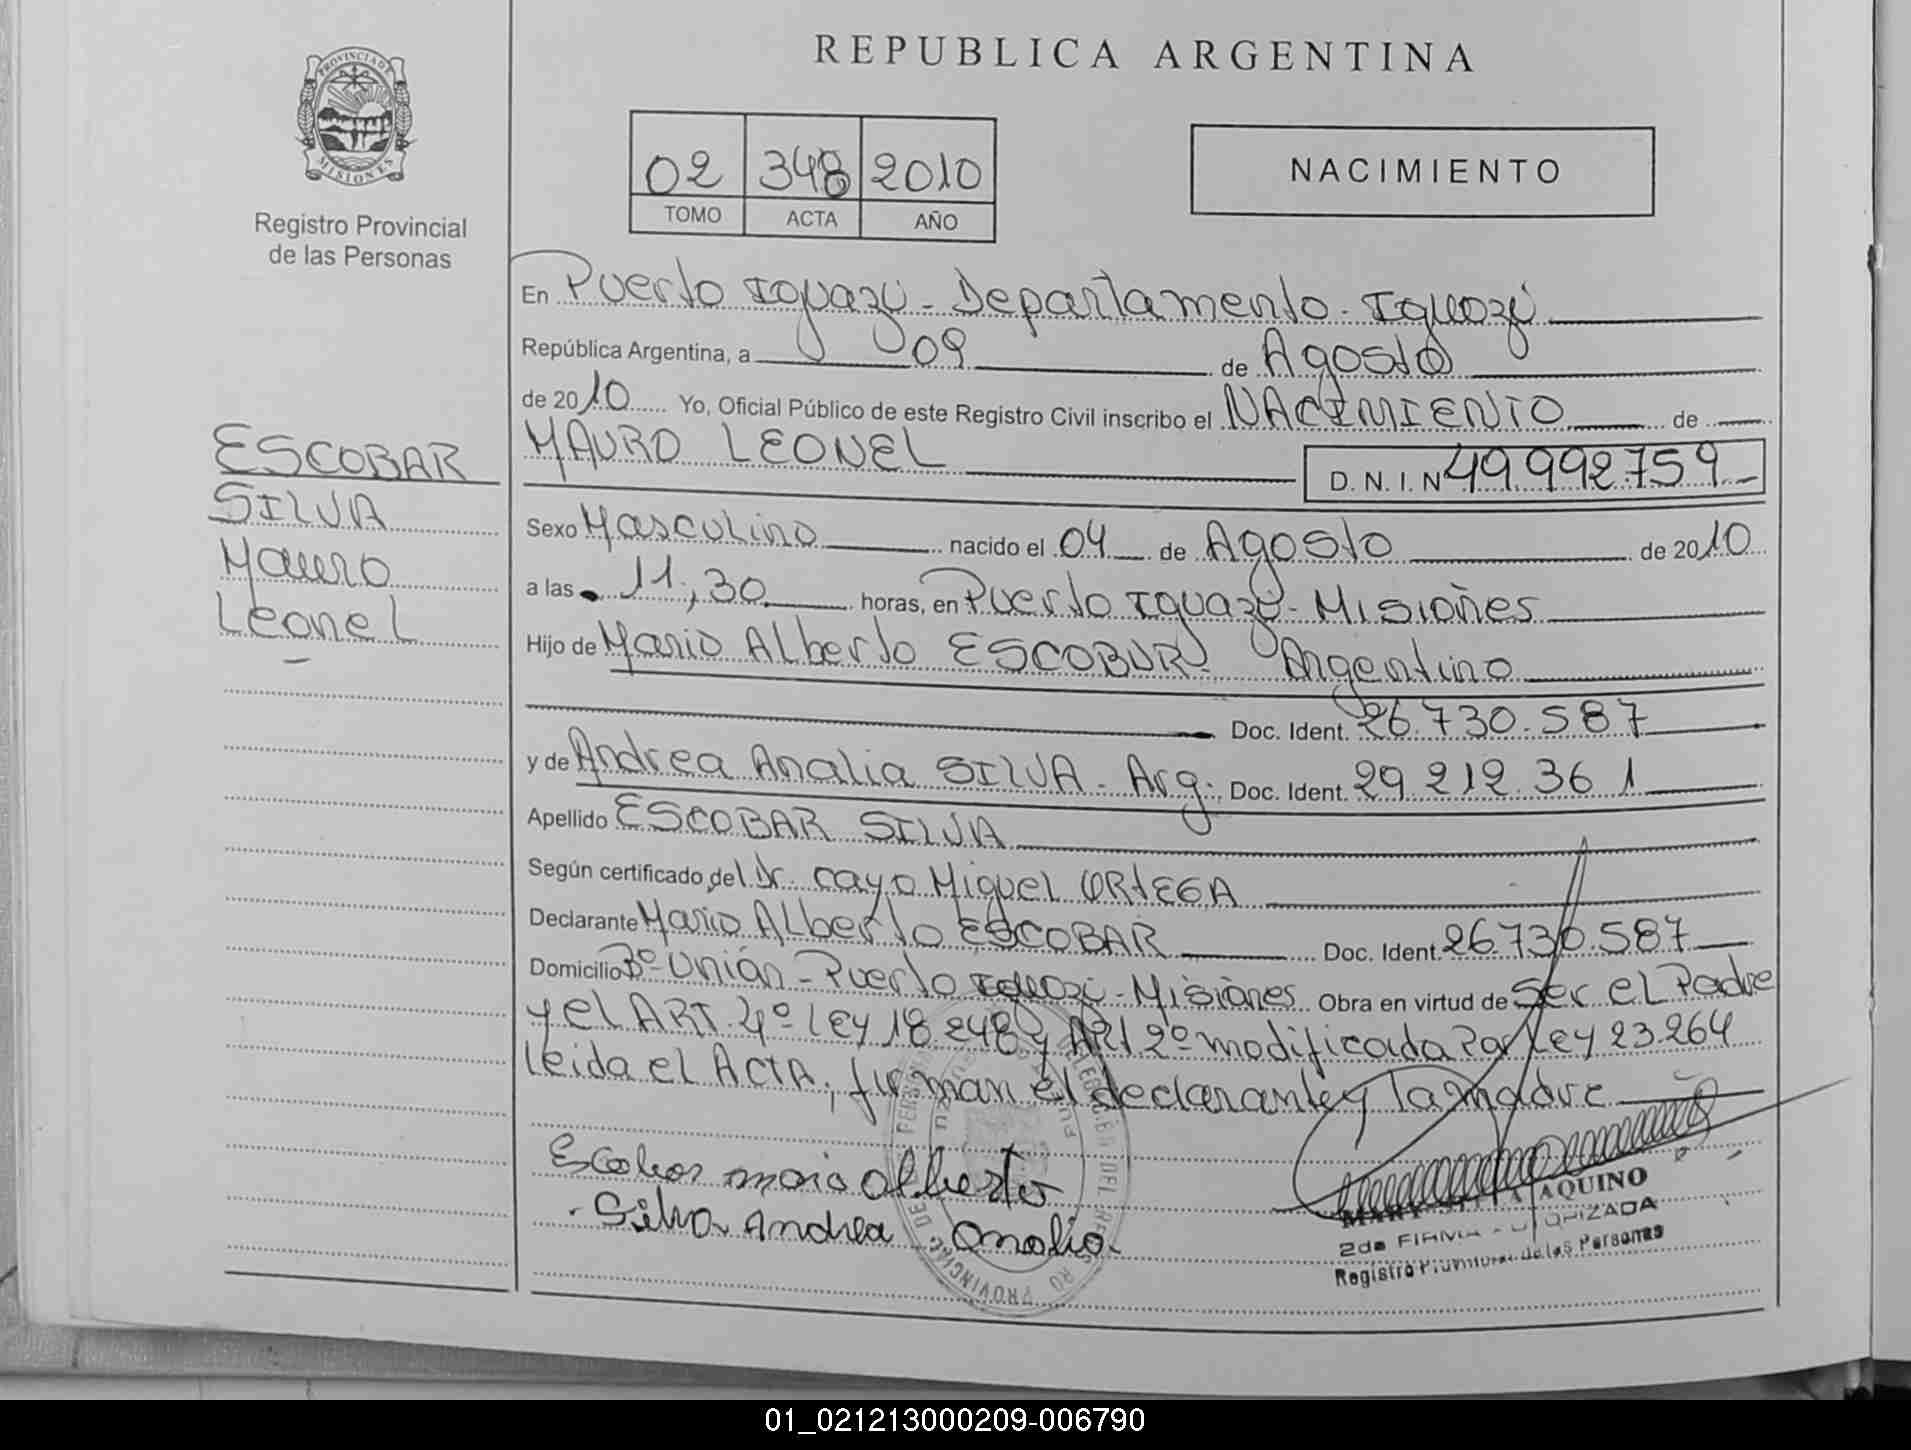 PROVINCIA DE
MISIONES
Registro Provincial
de las Personas
REPUBLICA ARGENTINA
02 348 2010
TOMO ACTA AÑO
NACIMIENTO
ESCOBAR
SILVA
Mauro
Leonel
En Puerto Iguazú - Departamento - Iguazú
República Argentina, a 09 de Agosto
de 2010 Yo, Oficial Público de este Registro Civil inscribo el NACIMIENTO de
MAURO LEONEL D. N. I. N 49.992.759
Sexo Masculino nacido el 04 de Agosto de 2010
a las 11,30 horas, en Puerto Iguazú - Misiones
Hijo de Mario Alberto ESCOBUR - Argentino
Doc. Ident. 26.730.587
y de Andrea Analia SILVA - Arg. Doc. Ident. 29.212.361
Apellido ESCOBAR SILVA
Según certificado del Dr. Cayo Miguel ORTEGA
Declarante Mario Alberto ESCOBAR Doc. Ident. 26.730.587
Domicilio Bº Unión - Puerto Iguazú - Misiones Obra en virtud de Ser el Padre
y el ART. 4º LEY 18.248 y ART 2º modificada Por Ley 23.264
leida el ACTA, firman el declarante y la madre
Escobar mario alberto
Silva Andrea Analia
AQUINO
2da FIRMA AUTORIZADA
Registro Provincial de las Personas
01_021213000209-006790